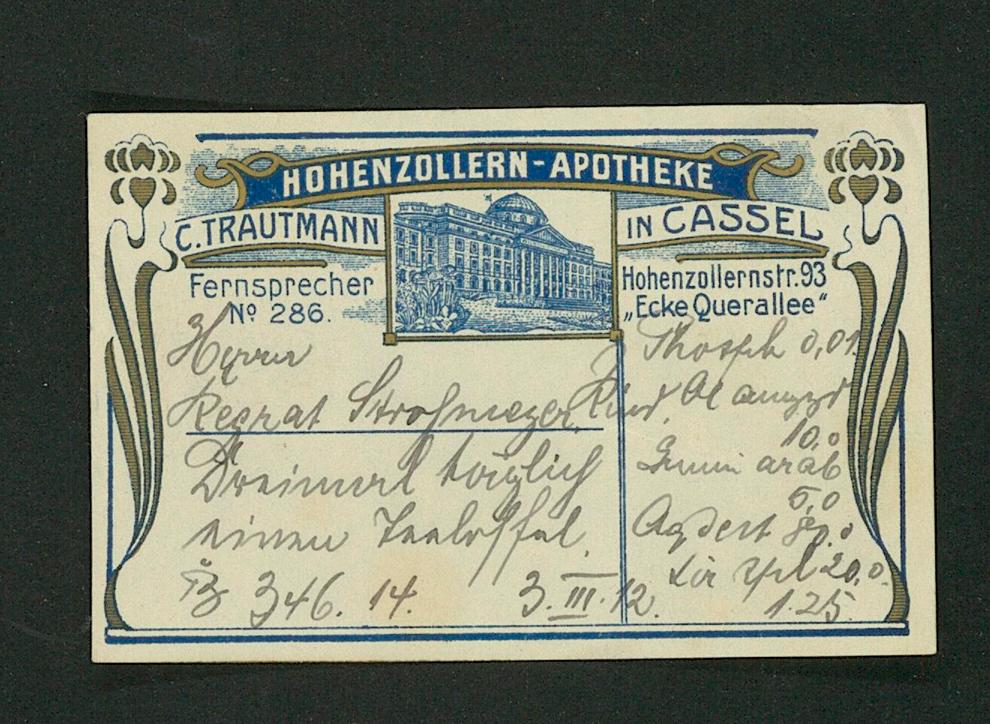 HOHENZOLLERN-APOTHEKE
C. TRAUTMANN
IN CASSEL
Fernsprecher
No 286.
Hohenzollernstr. 93
„Ecke Querallee“
Herrn
Regrat Strohmeyer, Kind
Dreimal täglich
einen Teelöffel.
346. 14. 3. III. 12.
Phosph 0,01.
Ol amygd
10.0
Gumi arab
5,0
Aq dest 80.0
20,0
1.25